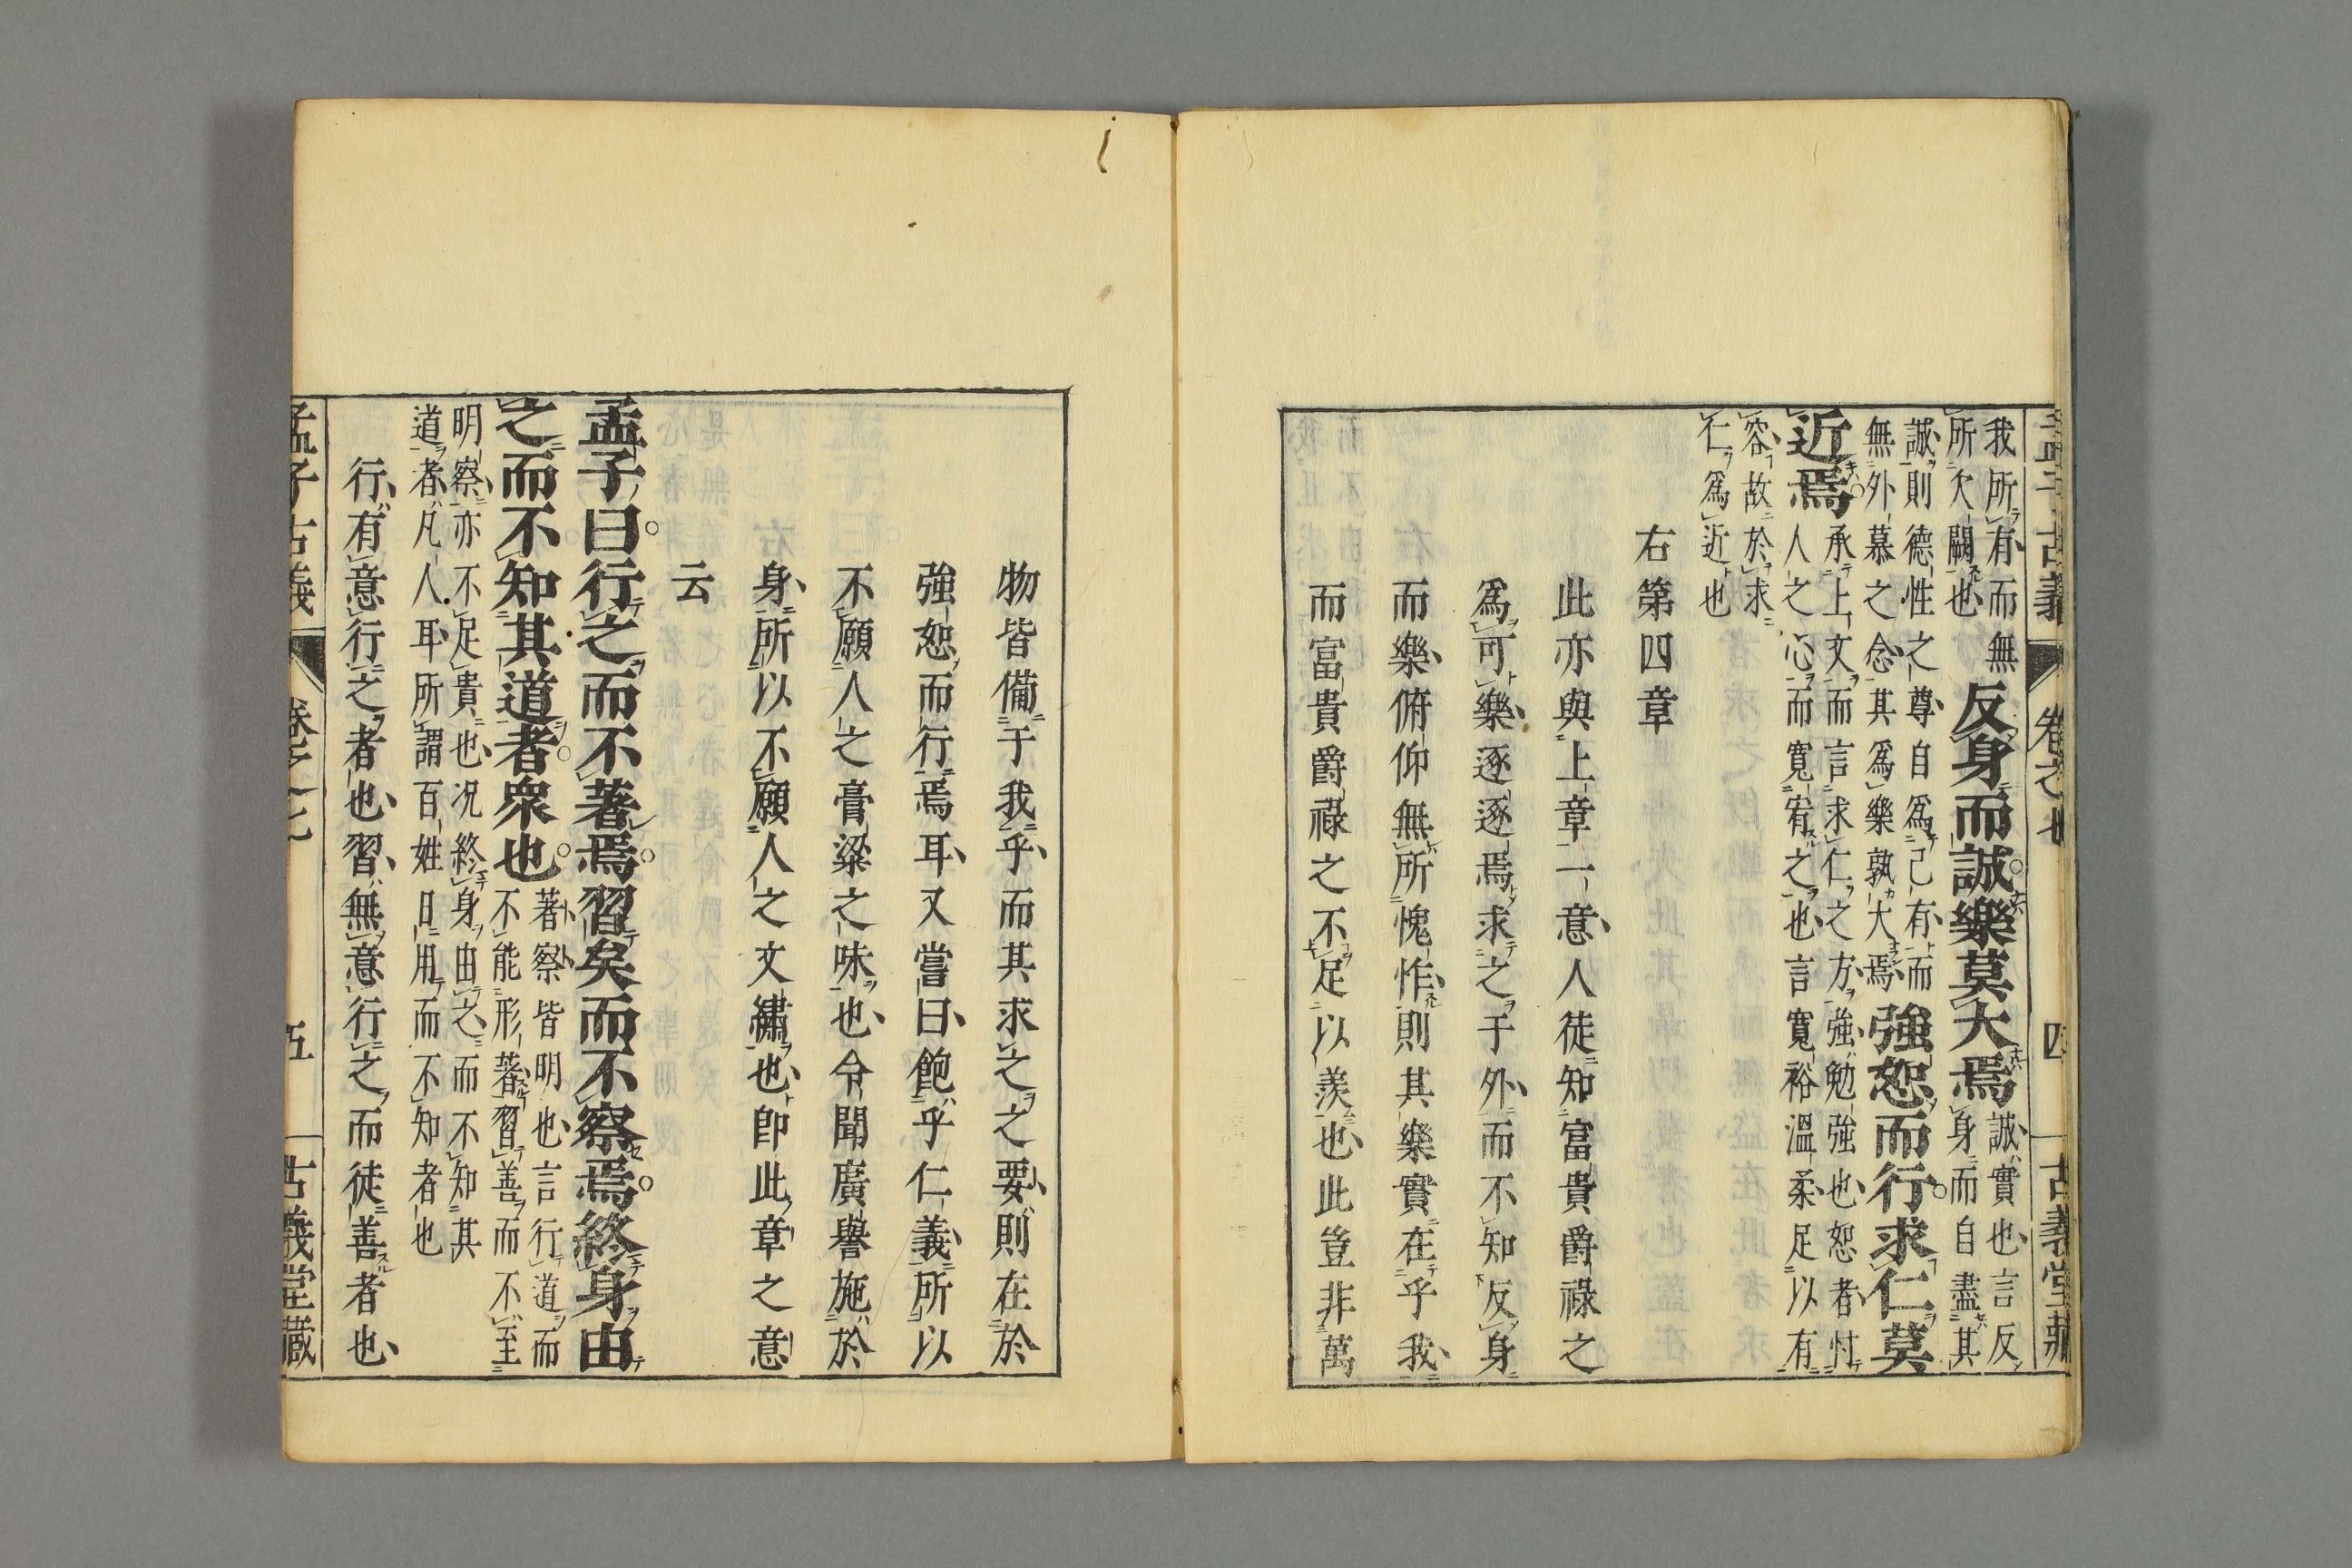 孟子古義 卷之七 四 古義堂藏
我所有而無
所欠闕也
反身而誠樂莫大焉
誠實也言反
身而自盡其
誠則德性之尊自爲己有而
無外慕之念其爲樂孰大焉
強恕而行求仁莫
近焉
承上文而言求仁之方強勉強也恕者忖
人之心而寬宥之也言寬裕溫柔足以有
容故於求
仁爲近也
右第四章
此亦與上章一意人徒知富貴爵祿之
爲可樂逐逐焉求之于外而不知反身
而樂俯仰無所愧怍則其樂實在乎我
而富貴爵祿之不足以羨也此豈非萬
物皆備于我乎而其求之之要則在於
強恕而行焉耳又嘗曰飽乎仁義所以
不願人之膏粱之味也令聞廣譽施於
身所以不願人之文繡也卽此章之意
云
孟子曰行之而不著焉習矣而不察焉終身由
之而不知其道者衆也
著察皆明也言行道而
不能形著習善而不至
明察亦不足貴也况終身由之而不知其
道者凡人耳所謂百姓日用而不知者也
行有意行之者也習無意行之而徒善者也
孟子古義 卷之七 五 古義堂藏